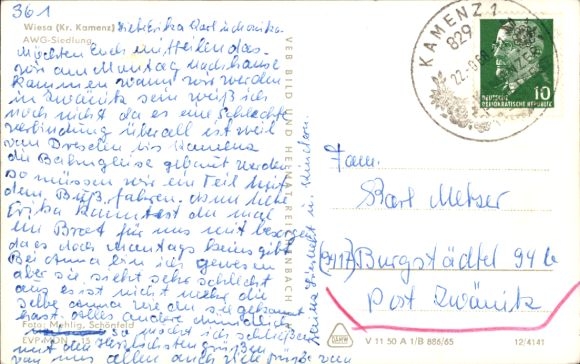 361
Wiesa (Kr. Kamenz)
AWG-Siedlung
Liebe Erika Karl u.
Möchten Euch mitteilen das
wir am Montag nach hause
kommen wann wir werden
in Zwönitz sein weiß ich
noch nicht da es eine schlechte
verbindung überall ist weil
von Dresden bis Kamenz
die Bahngleise gebaut werden
so müssen wir ein Teil mit
dem Buß fahren.
Erika kanntest du mal
ein Brot für uns mit
da es doch Montags keins gibt
Bei bin ich gewesen
aber sie sieht sehr schlecht
aus es ist nicht mehr die
selbe die gekannt
hast. Alles andre mündlich
so möcht ich schließen
mit den herzlichsten grüßen
von uns allen auch viel grüße von
Foto: Mehlig, Schönfeld
VEB BILD UND HEIMAT REICHENBACH
KAMENZ 1
829
10
DEUTSCHE
DEMOKRATISCHE REPUBLIK
Fam.
Karl
Burgstädtel 94 b
Post Zwönitz
V 11 50 A 1/B 886/65
12/4141